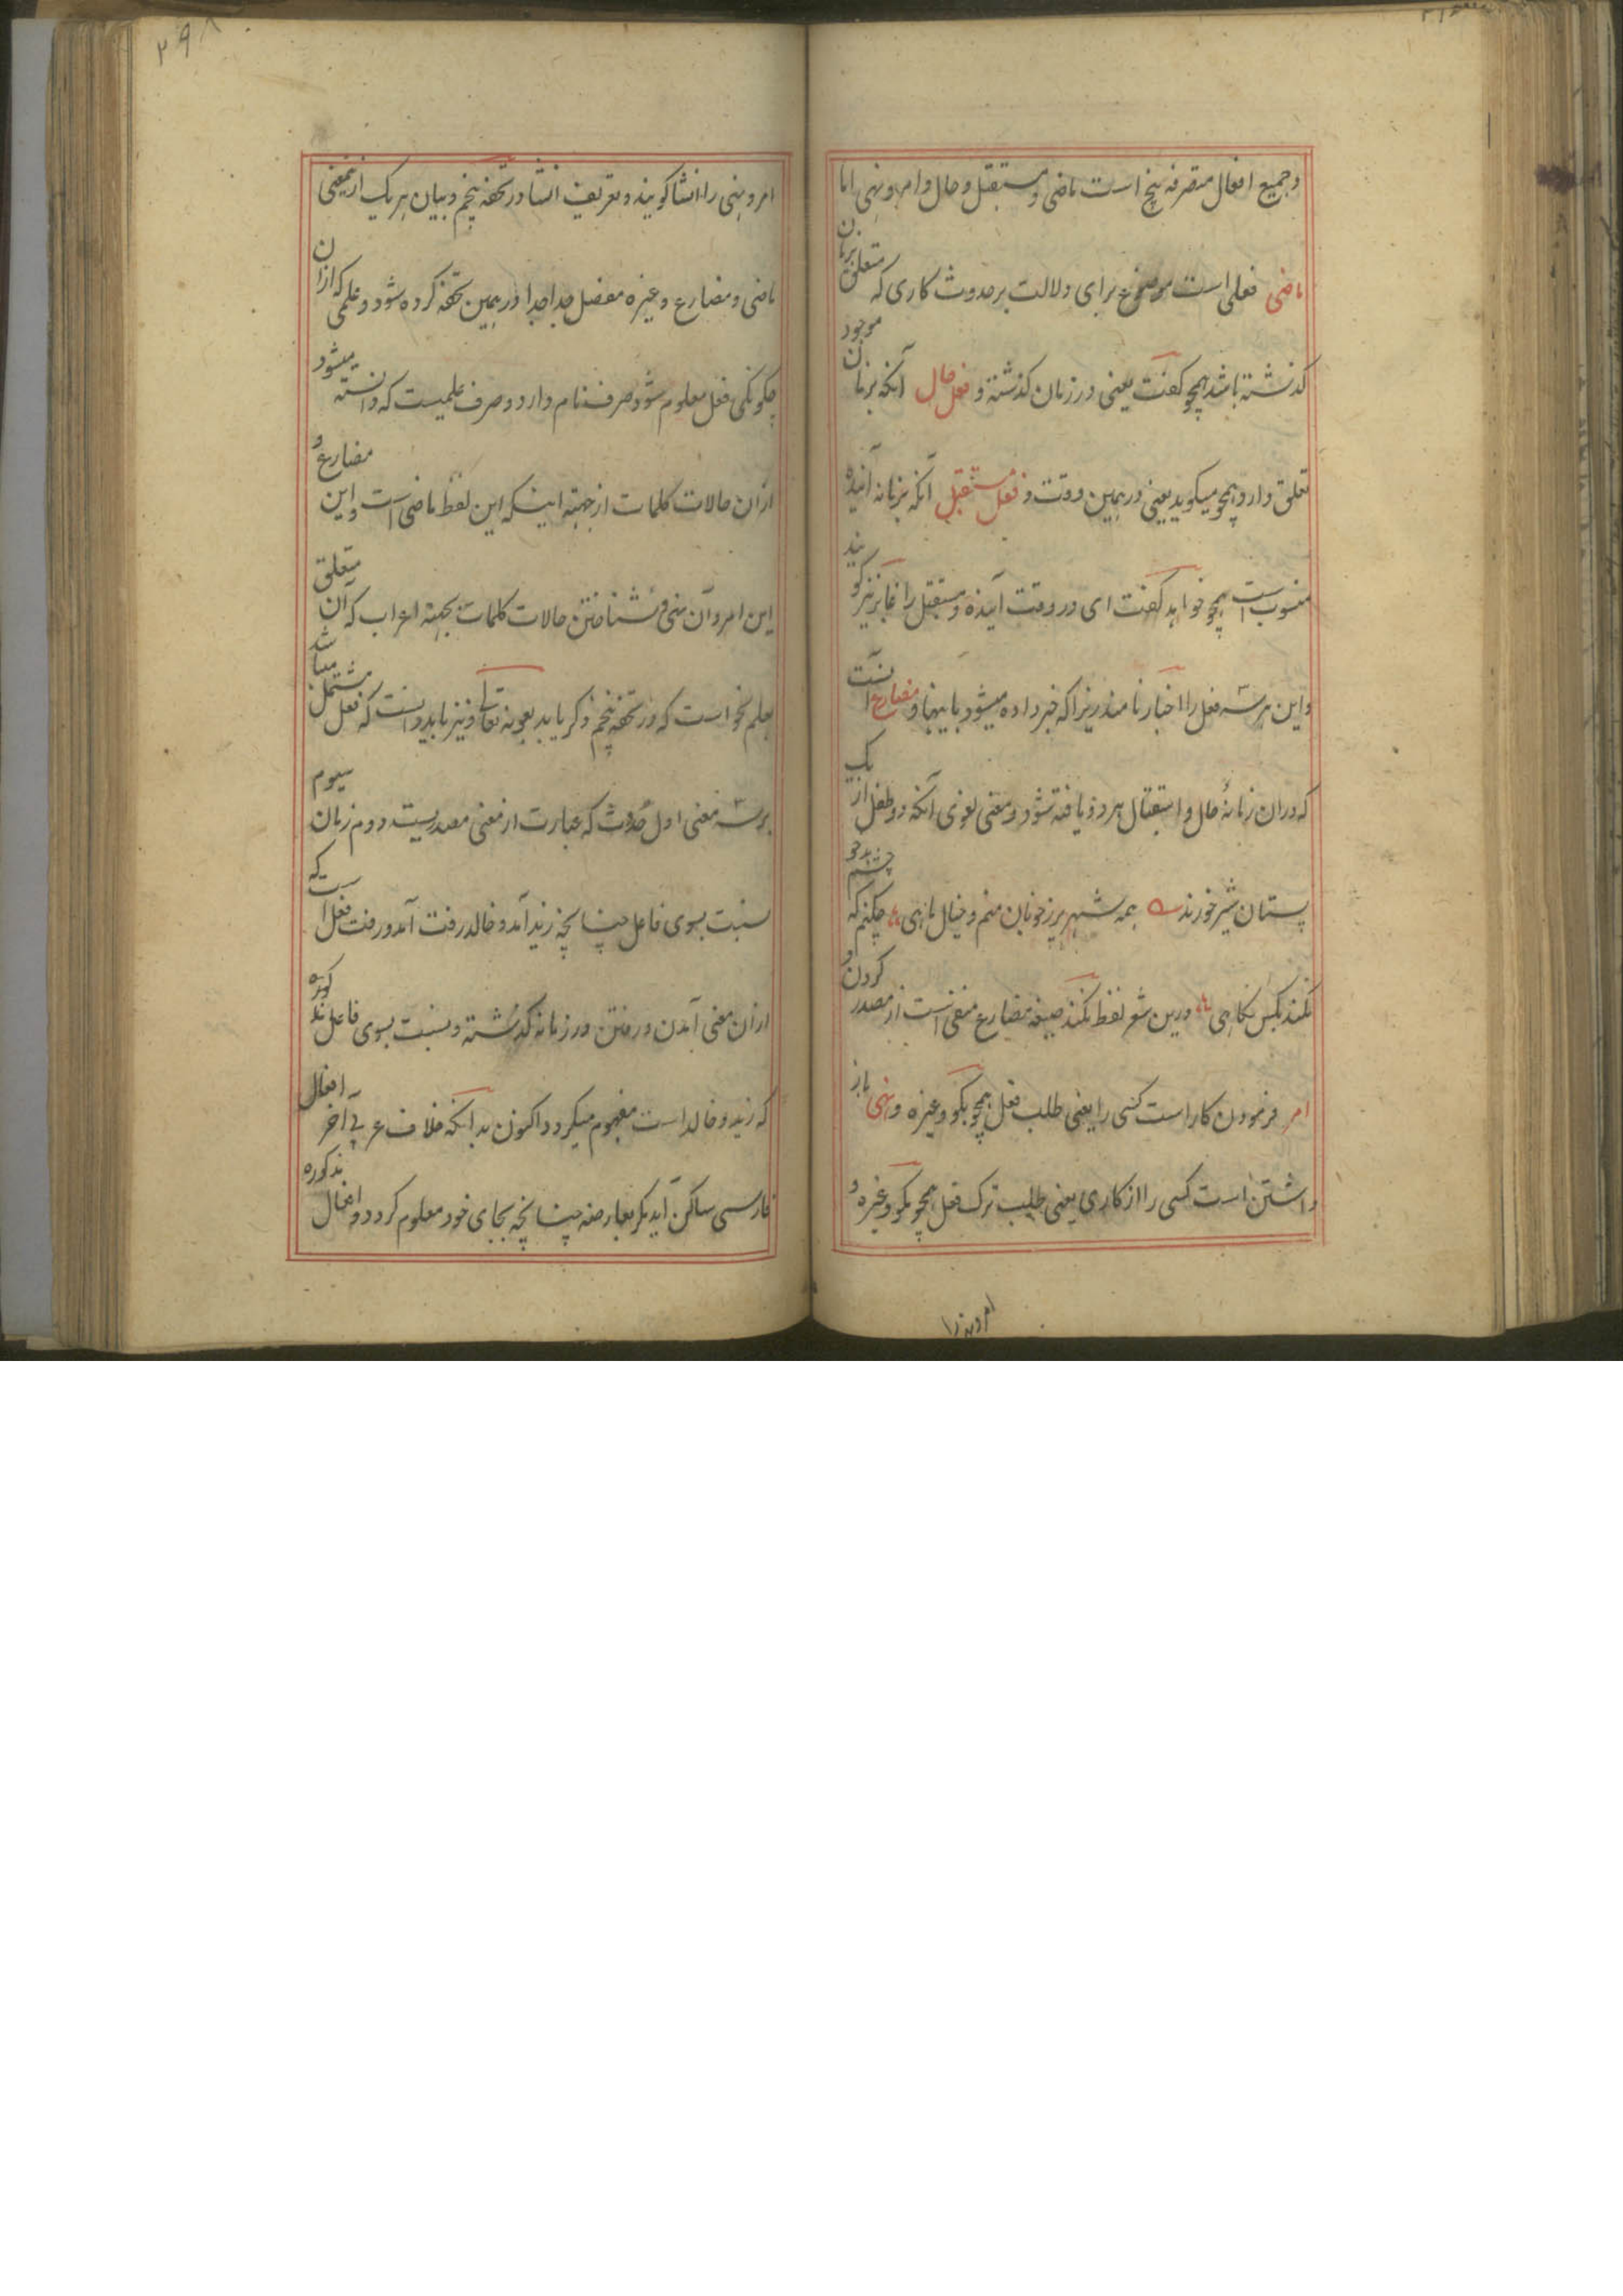 وجمیع افعال متصرفه پنج است ماضی و مستقبل و حال و امر و نهی اما
ماضی فعلی است موضوع برای دلالت بر حدوث کاری که متعلق بزمان
کذشته باشد همچو کفت یعنی در زمان کذشته و فعل حال آنکه بزمان موجود
تعلق دارد همچو میکوید یعنی در همین وقت و فعل مستقبل آنکه بزمانه آینده
منسوب است همچو خواهد کفت ای در وقت آینده و مستقبل را غابر نیز کویند
و این هر سه فعل را اخبار نامند زیرا که خبر داده میشود باینها و مضارع آنست
که دران زمانهٔ حال و استقبال هر دو یافته شود و معنی لغوی آنکه دو طفل از یک
پستان شیر خورند همه شهر پر ز خوبان منم و خیال ماهی چکنم که چشم بدخو
نکند بکس نکاهی درین شعر لفظ نکند صیغه مضارع منفی است از مصدر کردن و
امر فرمودن کار است کسی را یعنی طلب فعل همچو بکو وغیره و نهی باز
داشتن است کسی را از کاری یعنی طلب ترک فعل همچو مکو وغیره و
امر و نهی را
۲۹۸
امر و نهی را انشا کویند و تعریف انشا در تحفه پنجم و بیان هر یک از یعنی
ماضی و مضارع وغیره مفصل جدا جدا در همین تحفه کرده شود و علمی که ازان
چکونکی فعل معلوم شود صرف نام دارد و صرف علمیست که دانسته میشود
ازان حالات کلمات از جهته اینکه این لفظ ماضی است و این مضارع و
این امر و آن نهی و شناختن حالات کلمات بجهته اعراب که آن متعلق
بعلم نحو است که در تحفه پنجم ذکر یابد بعونه تعالی و نیز باید دانست که فعل مشتمل میباشد
بر سه معنی اول حدوث که عبارت از معنی مصدریست دوم زمان سیوم
نسبت بسوی فاعل چنانچه زید آمد و خالد رفت آمد و رفت فعل است که
ازان معنی آمدن و رفتن در زمانه کذشته و نسبت بسوی فاعل
که زید و خالد است مفهوم میکردد اکنون بدانکه خلاف عربی آخر افعال
فارسی ساکن آید مکر بعارضه چنانچه بجای خود معلوم کردد و افعال مذکوره